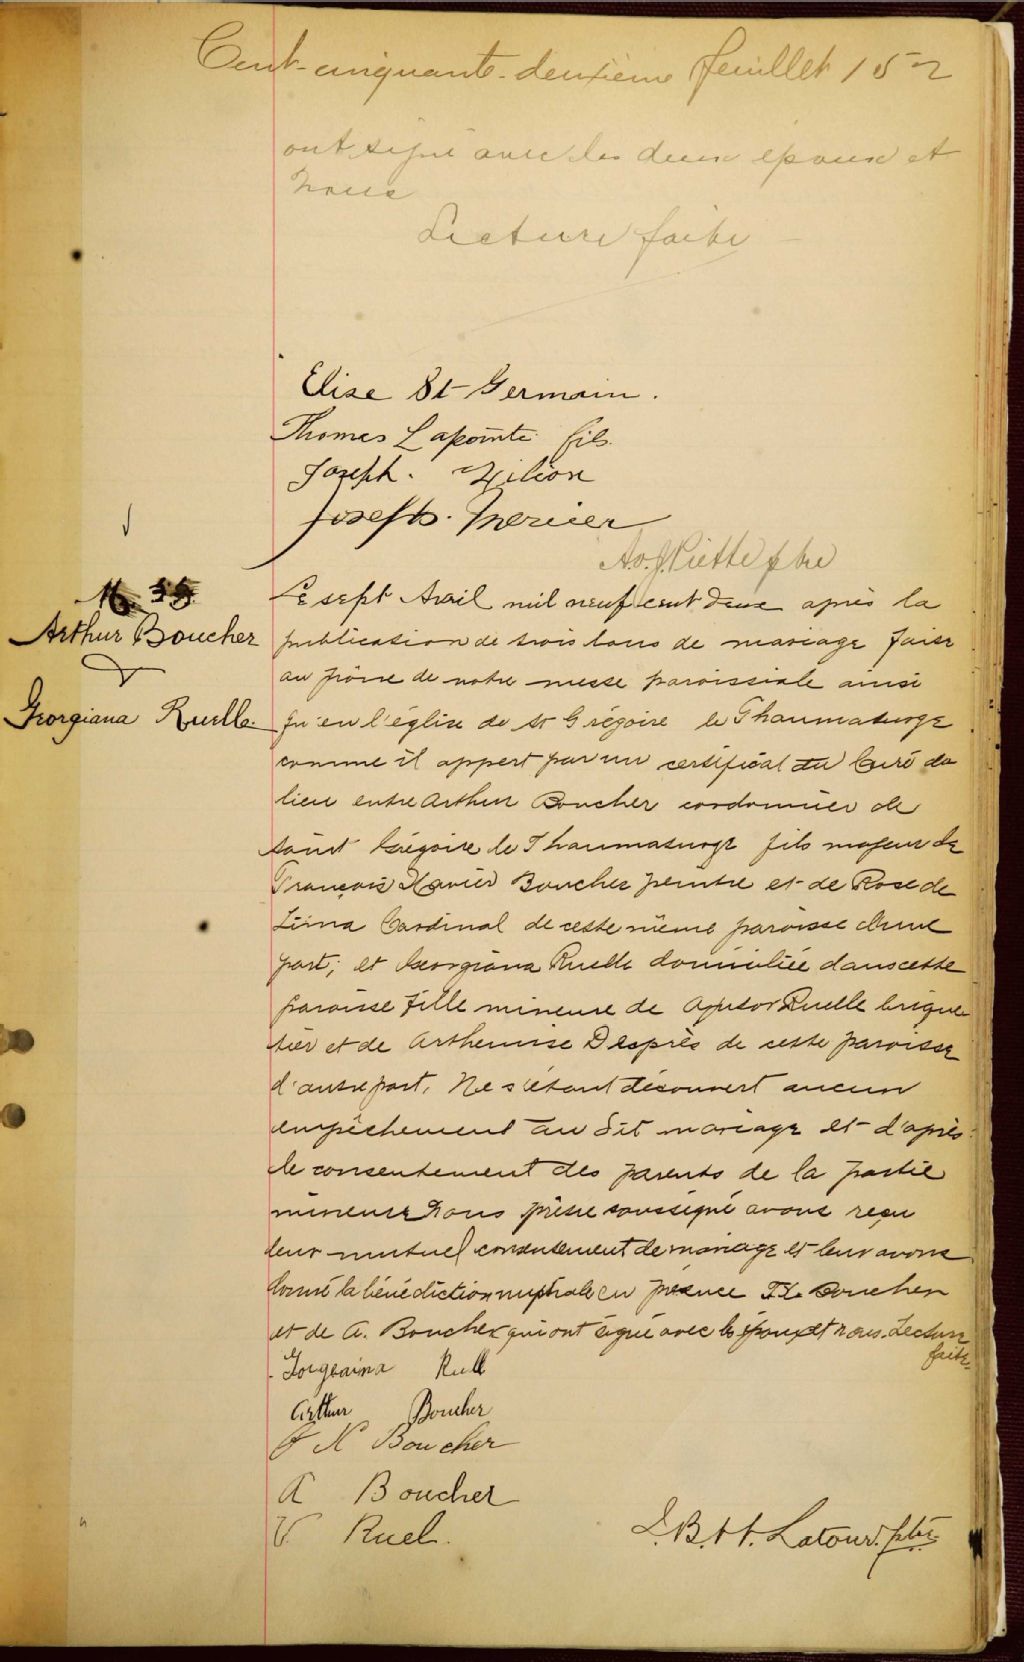 Cent-cinquante-deuxième feuillet 152
ont signé avec les deux époux et
nous
Lecture faite
Elise St-Germain.
Thomas Lapointe fils
Joseph.
Joseph. Mercier
Piette ptre
M 55
Arthur Boucher
&
Georgiana Ruelle.
Le sept Avril mil neuf cent deux après la
publication de trois bans de mariage faite
au prône de notre messe paroissiale ainsi
qu'en l'église de St Grégoire le Thaumaturge
comme il appert par un certificat du Curé du
lieu entre Arthur Boucher cordonnier de
saint Grégoire le Thaumaturge fils majeur de
François Xavier Boucher peintre et de Rose de
Lima Cardinal de cette même paroisse d'une
part; et Georgiana Ruelle domiciliée dans cette
paroisse fille mineure de Ruelle brique-
tier et de Arthemise Desprès de cette paroisse
d'autre part. Ne s'étant découvert aucun
empêchement au dit mariage et d'après
le consentement des parents de la partie
mineure Nous prêtre soussigné avons reçu
leur mutuel consentement de mariage et leur avons
donné la bénédiction nuptiale en présence F.X. Boucher
et de A. Boucher qui ont signé avec les époux et nous. Lecture
faite.
Gorgeaina Rull
Arthur Boucher
F X Boucher
A Boucher
V Ruel.
Latour. ptre